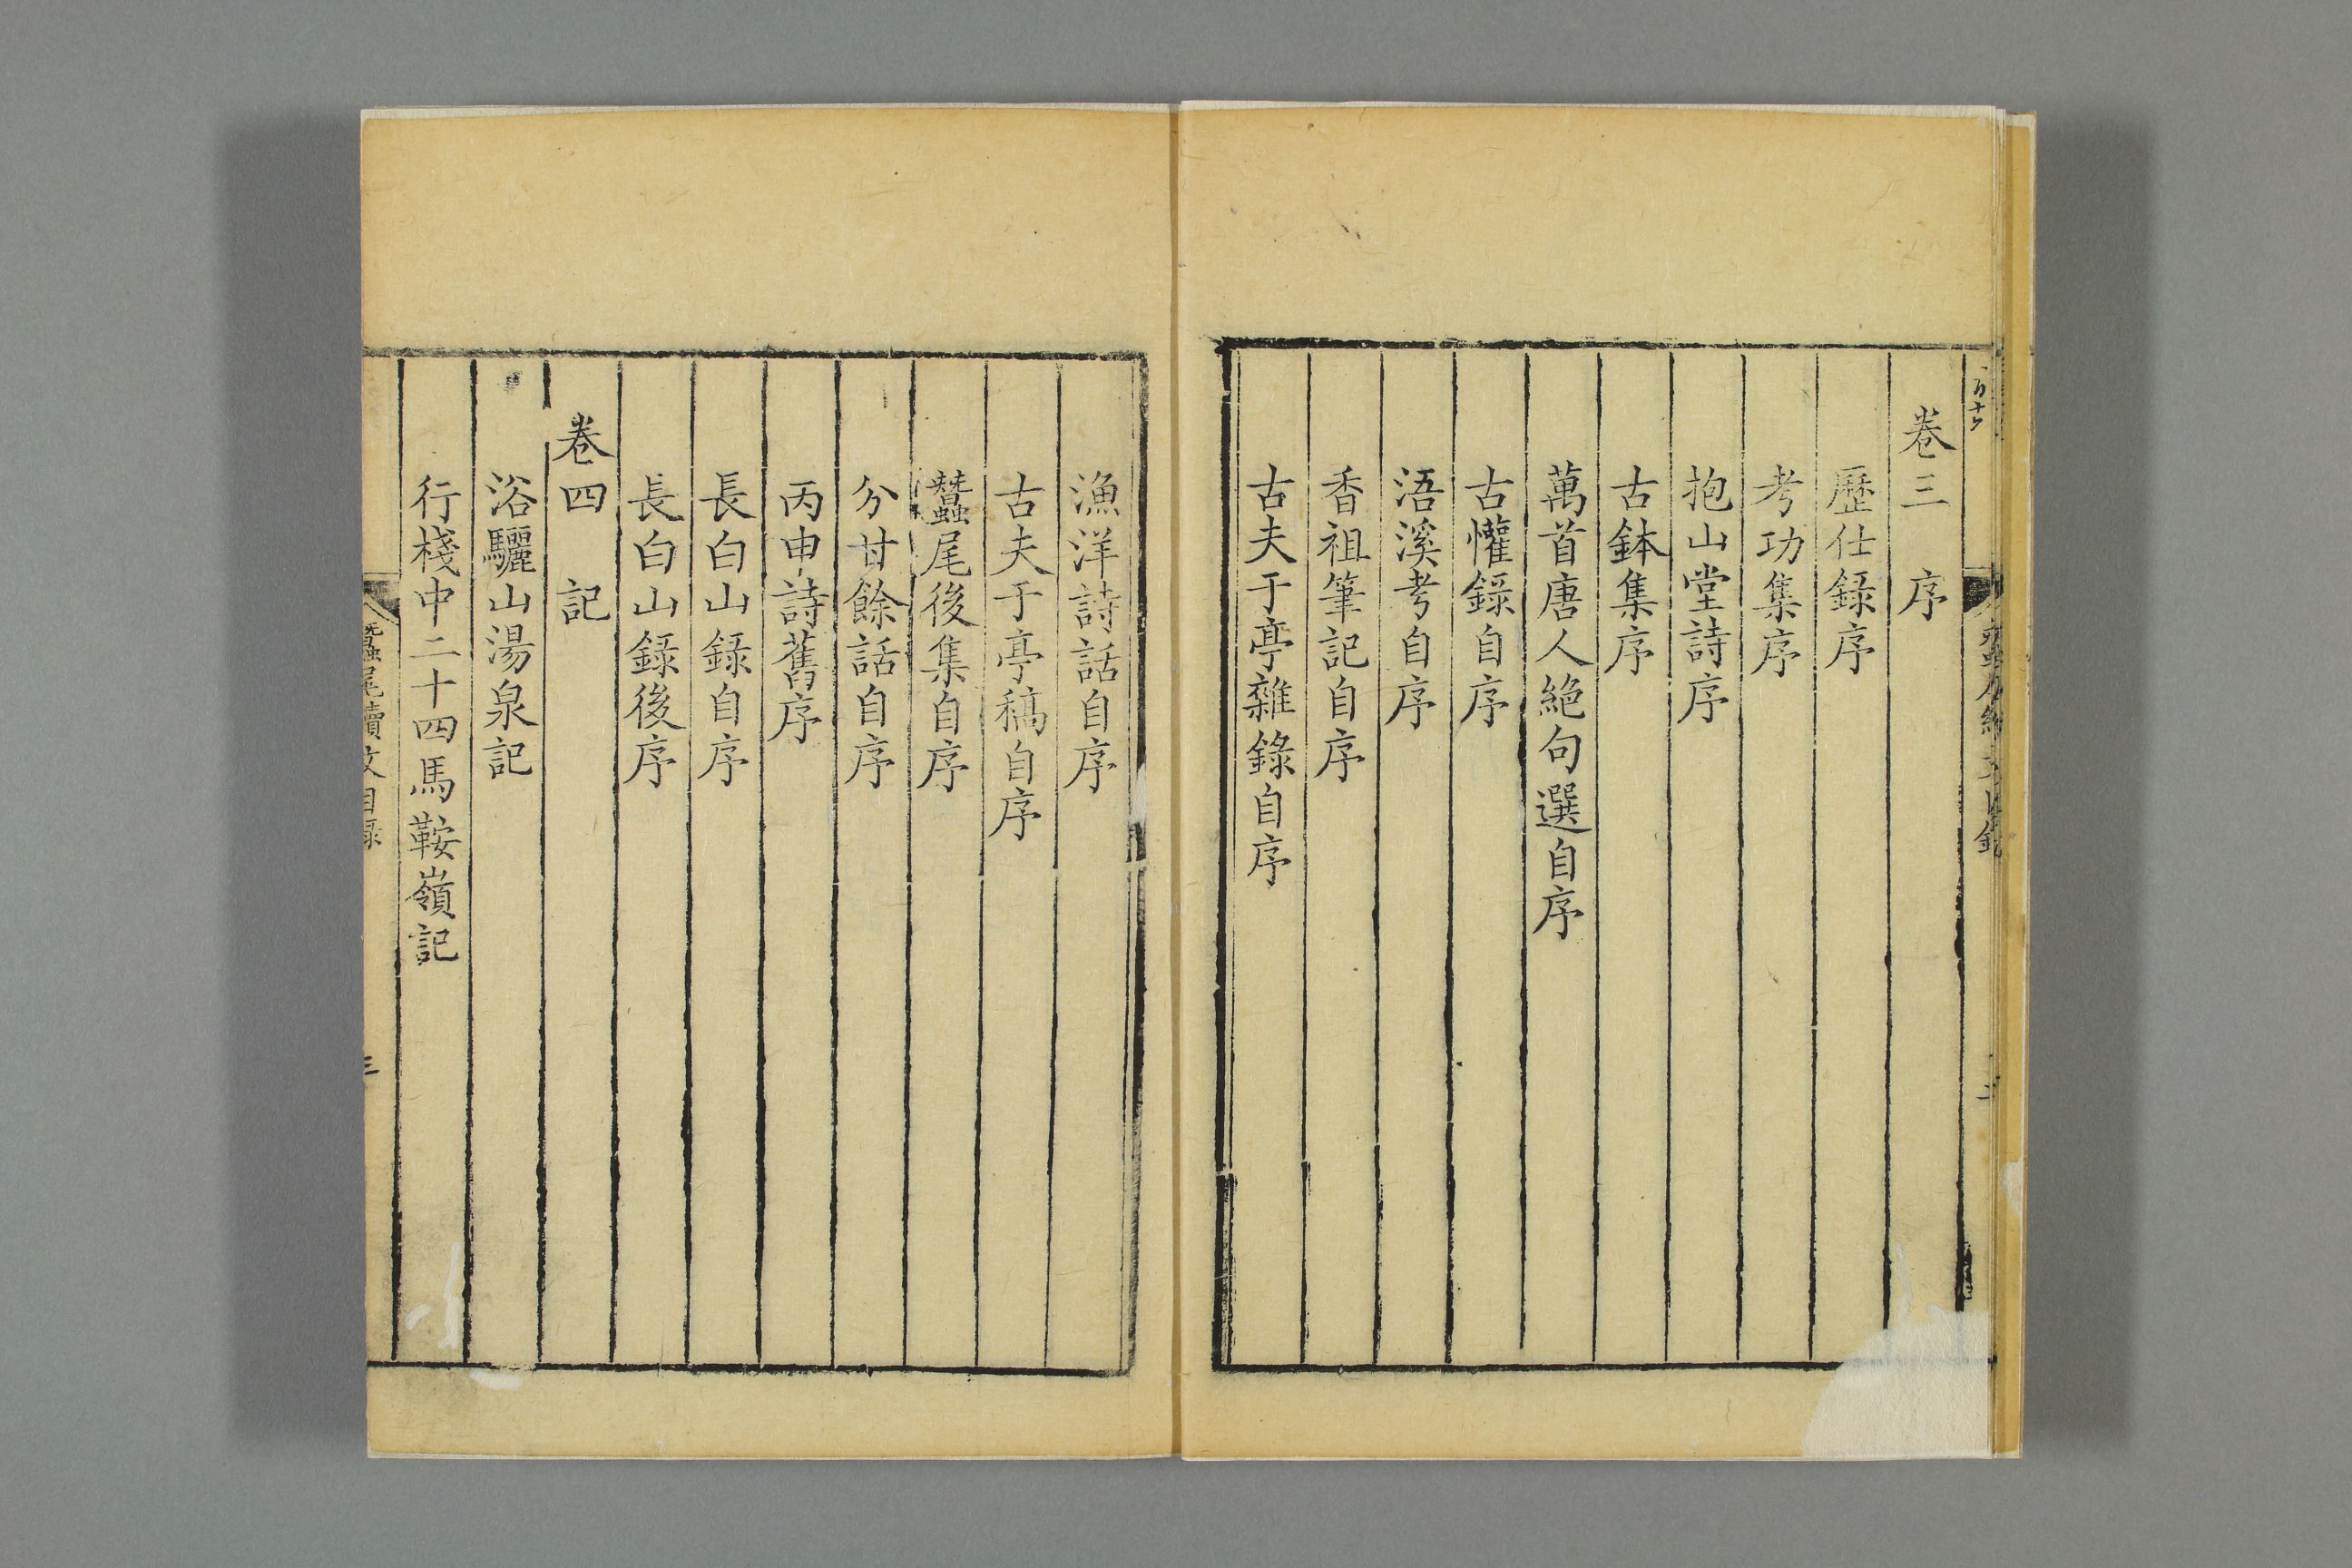 卷三　序
歷仕錄序
考功集序
抱山堂詩序
古鉢集序
萬首唐人絕句選自序
古懽錄自序
浯溪考自序
香祖筆記自序
古夫于亭雜錄自序
漁洋詩話自序
古夫于亭稿自序
蠶尾後集自序
分甘餘話自序
丙申詩舊序
長白山錄自序
長白山錄後序
卷四　記
浴驪山湯泉記
行棧中二十四馬鞍嶺記
蠶尾續文目録
三